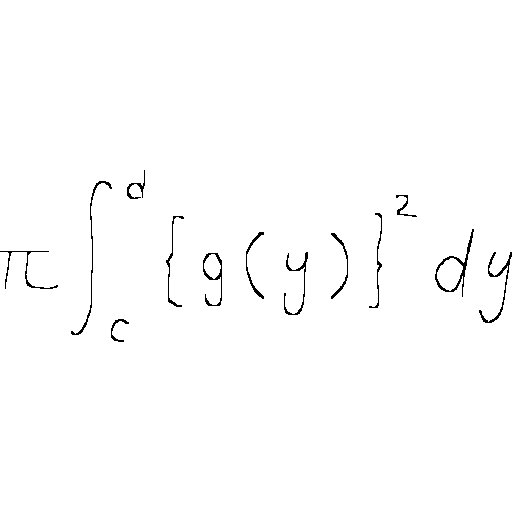 \pi \int_{c}^{d} \{ g ( y ) \}^{2} d y